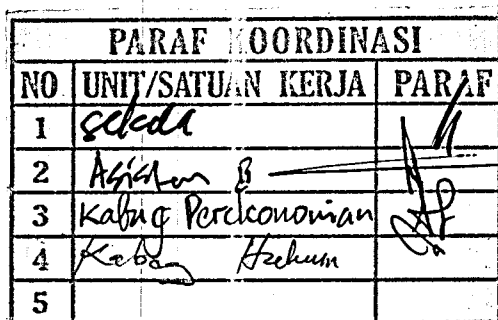 PARAF KOORDINASI
NO UNIT/SATUAN KERJA PARAF
1 Sekda
2 Asisten B
3 Kabag Perekonomian
4 Kabag Hukum
5